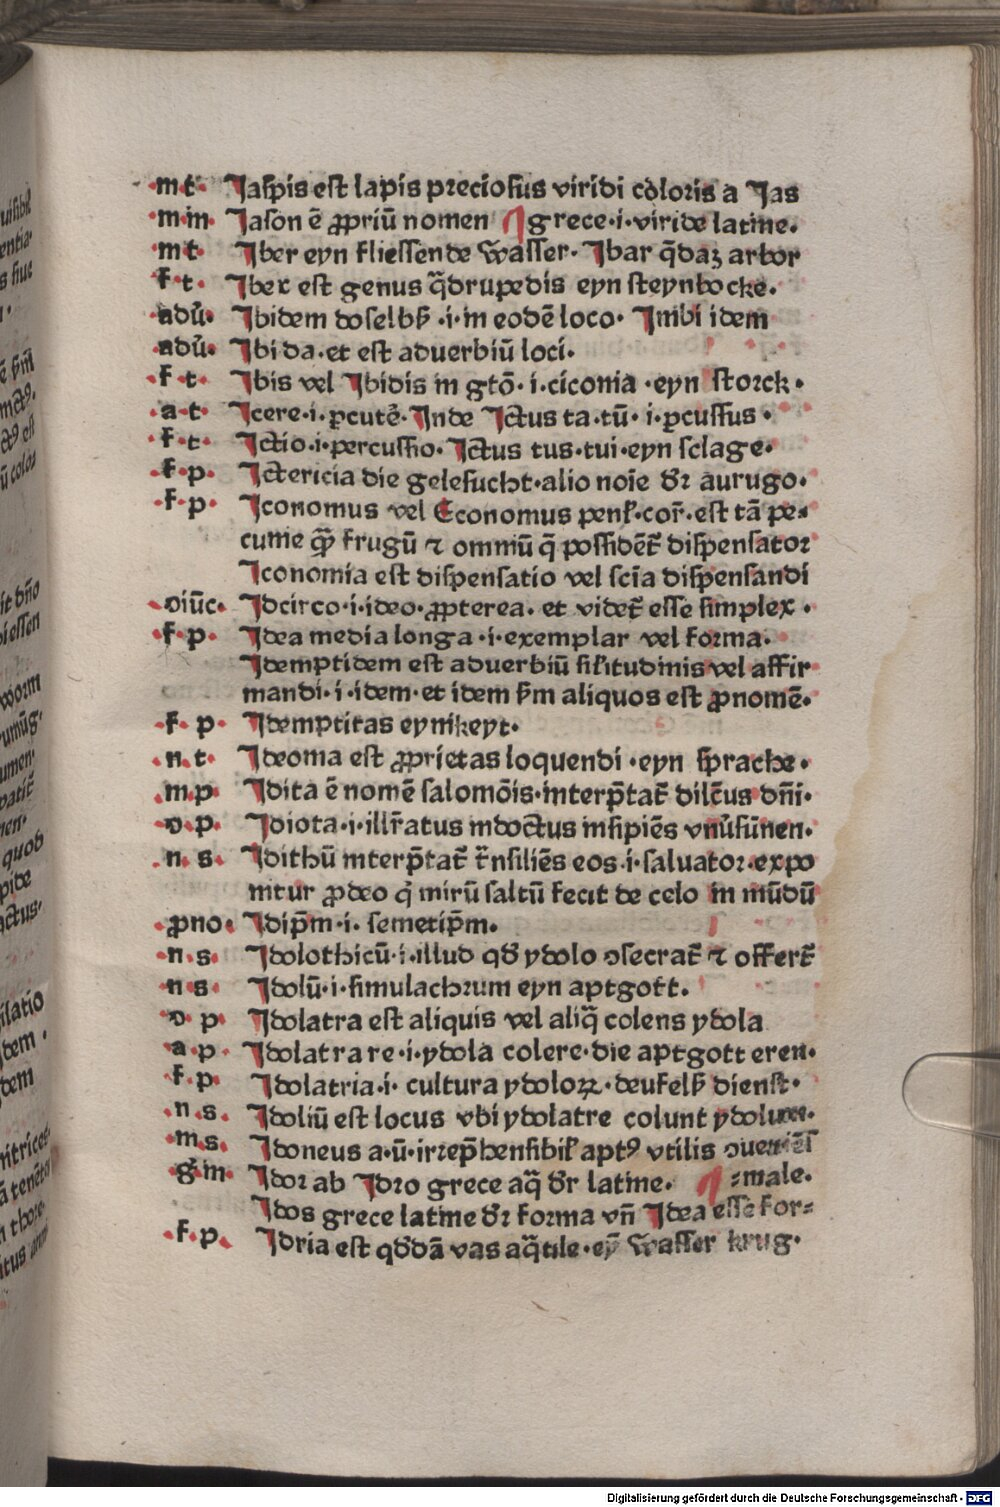 ·m t· Jaſpis eſt lapis precioſus viridi coloris a Jas
·m in· Jaſon ē ꝓpriū nomen ¶ grece·i·viride latine.
·m t· Jber eyn flieſſende waſſer· Jbar q̄daꝫ arbor
f· t· Jbex eſt genus q̄drupedis eyn ſteynbocke.
·adū· Jbidem doſelbſt ·i·in eodē loco· Jnibi idem
·adū· Jbi da·et eſt aduerbiū loci·
·f· t· Jbis vel Jbidis in gtō· i·ciconia ·eyn ſtorck·
·a·t· Jcere·i·ꝑcutē·Jnde Jctus ta·tū· i·ꝑcuſſus·
f· t· Jctio·i·percuſſio·Jctus tus·tui·eyn ſclage·
·f·p· Jctericia die geleſucht·alio noīe dr̄ aurugo·
·f·p· Jconomus vel Economus penl̄·cor̄·eſt tā pe⸗
cunie qꝫ frugū ⁊ omniū q̄ poſſidēt̄ diſpenſator
Jconomia eſt diſpenſatio vel ſcīa diſpenſandi
·diūc· Jdcirco·i·ideo·ꝓpterea· et videt̄ eſſe ſimplex ·
·f·p· Jdea media longa ·i·exemplar vel forma·
Jdemptidem eſt aduerbiū ſil̄itudinis vel affir
mandi·i·idem·et idem ſm̄ aliquos eſt ꝓnomē·
·f· p· Jdemptitas eynikeyt·
·n·t· Jdeoma eſt ꝓprietas loquendi ·eyn ſprache·
·m·p Jdita ē nomē ſalomōis·interp̄tat̄ dilc̄us dn̄i·
·d·p· Jdiota·i·illr̄atus indoctus inſipiēs
·n· s· Jdithū interp̄tat̄ tr̄nſiliēs eos·i·ſaluator·expo
nitur ꝓdeo q̇ mirū ſaltū fecit de celo in mūdū
·ꝓno· Jdip̄m·i· ſemetip̄m·
·n·s· Jdolothicū·i·illud qd̄ ydolo ↄſecrat̄ ⁊ offert̄
·n s· Jdolū·i·ſimulachrum eyn aptgott·
·d p· Jdolatra eſt aliquis vel aliq̄ colens ydola
·a·p· Jdolatrare·i·ydola colere·die aptgott eren·
·f·p· Jdolatria·i· cultura ydoloꝝ·deufelſ dienſt·
·n·s· Jdoliū eſt locus vbi ydolatre colunt ydolum·
·m·s· Jdoneus a·ū·irrep̄henſibil̄ aptꝰ vtilis ↄueniēs
·g·m· Jdor ab Jdro grece aq̄ dr̄ latine· ¶⸗male·
Jdos grece latine dr̄ forma vn̄ Jdea eſſe for⸗
·f·p· Jdria eſt qd̄dā vas aq̄tile·ey̅ waſſer krug·
Digitalisierung gefördert durch die Deutsche Forschungsgemeinschaft - DFG